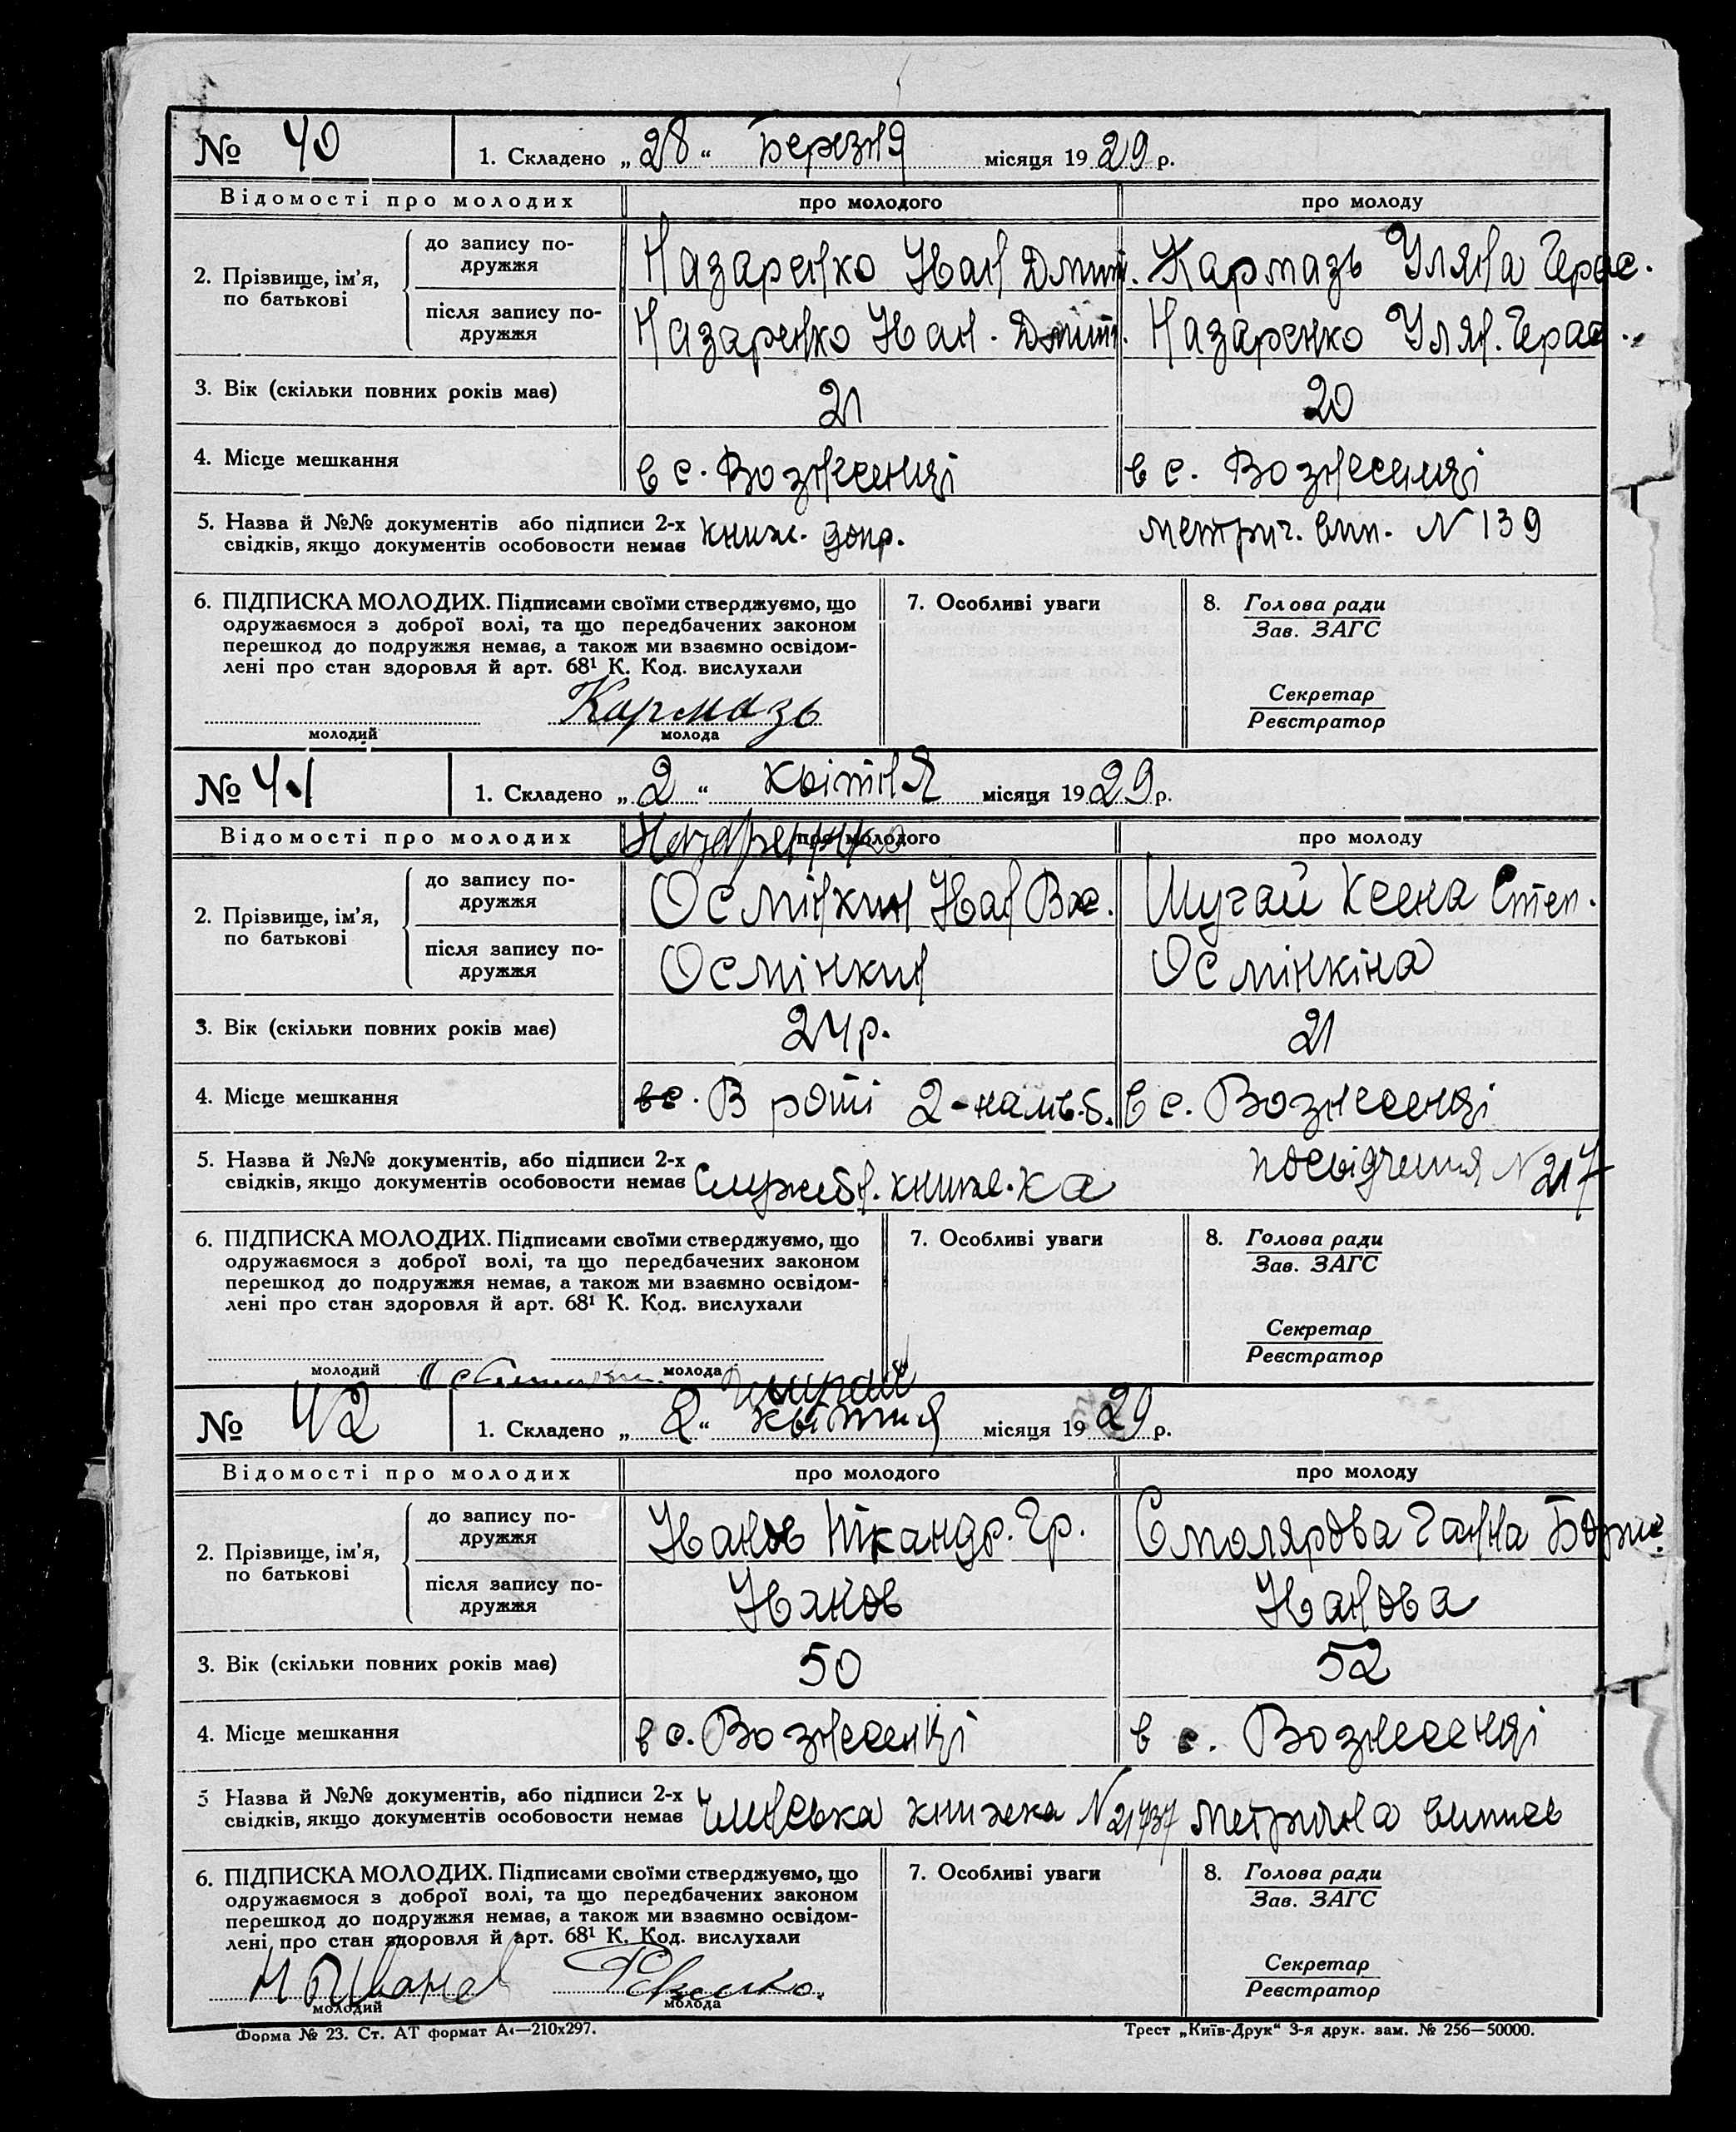 № 40
1. Складено „28“ Березня місяця 1929 р.
Відомості про молодих
про молодого
про молоду
2. Прізвище, ім'я, по батькові
до запису подружжя
Назаренко Іван Дмит.
Кармазь Уляна Герас.
після запису подружжя
Назаренко Іван. Дмит.
Назаренко Улян. Герас.
3. Вік (скільки повних років має)
21
20
4. Місце мешкання
в с. Вознесенці
в с. Вознесенці
5. Назва й №№ документів або підписи 2-х
свідків, якщо документів особовости немає
книж. допр.
метрич. вип. N 139
6. ПІДПИСКА МОЛОДИХ. Підписами своїми стверджуємо, що
одружаємося з доброї волі, та що передбачених законом
перешкод до подружжя немає, а також ми взаємно освідом-
лені про стан здоровля й арт. 68¹ К. Код. вислухали
Кармазь
молодий
молода
7. Особливі уваги
8. Голова ради
Зав. ЗАГС
Секретар
Реєстратор
№ 41
1. Складено „2“ квітня місяця 1929 р.
Відомості про молодих
Назаренко
про молодого
про молоду
2. Прізвище, ім'я,
по батькові
до запису по-
дружжя
Осмінкин Іван Вас.
Шугай Ксена Степ.
після запису по-
дружжя
Осмінкин
Осмінкіна
3. Вік (скільки повних років має)
24 р.
21
4. Місце мешкання
в с. В роті 2-
в с. Вознесенці
5. Назва й №№ документів, або підписи 2-х
свідків, якщо документів особовости немає
Службв. книж.ка
посвідчення N 217
6. ПІДПИСКА МОЛОДИХ. Підписами своїми стверджуємо, що
одружаємося з доброї волі, та що передбачених законом
перешкод до подружжя немає, а також ми взаємно освідом-
лені про стан здоровля й арт. 68¹ К. Код. вислухали
молодий
молода
7. Особливі уваги
8. Голова ради
Зав. ЗАГС
Секретар
Реєстратор
№ 42
1. Складено „2“ квітня місяця 1929 р.
Відомості про молодих
про молодого
про молоду
2. Прізвище, ім'я,
по батькові
до запису по-
дружжя
Іванов Нікандр. Гр.
Смолярова Ганна Борис.
після запису по-
дружжя
Іванов
Іванова
3. Вік (скільки повних років має)
50
52
4. Місце мешкання
в с. Вознесенці
в с. Вознесенці
5 Назва й №№ документів, або підписи 2-х
свідків, якщо документів особовости немає
Членська книжка N 21737
метрична випись
6. ПІДПИСКА МОЛОДИХ. Підписами своїми стверджуємо, що
одружаємося з доброї волі, та що передбачених законом
перешкод до подружжя немає, а також ми взаємно освідом-
лені про стан здоровля й арт. 68¹ К. Код. вислухали
молодий
молода
7. Особливі уваги
8. Голова ради
Зав. ЗАГС
Секретар
Реєстратор
Форма № 23. Ст. АТ формат А4—210х297.
Трест „Київ-Друк“ 3-я друк. зам. № 256—50000.